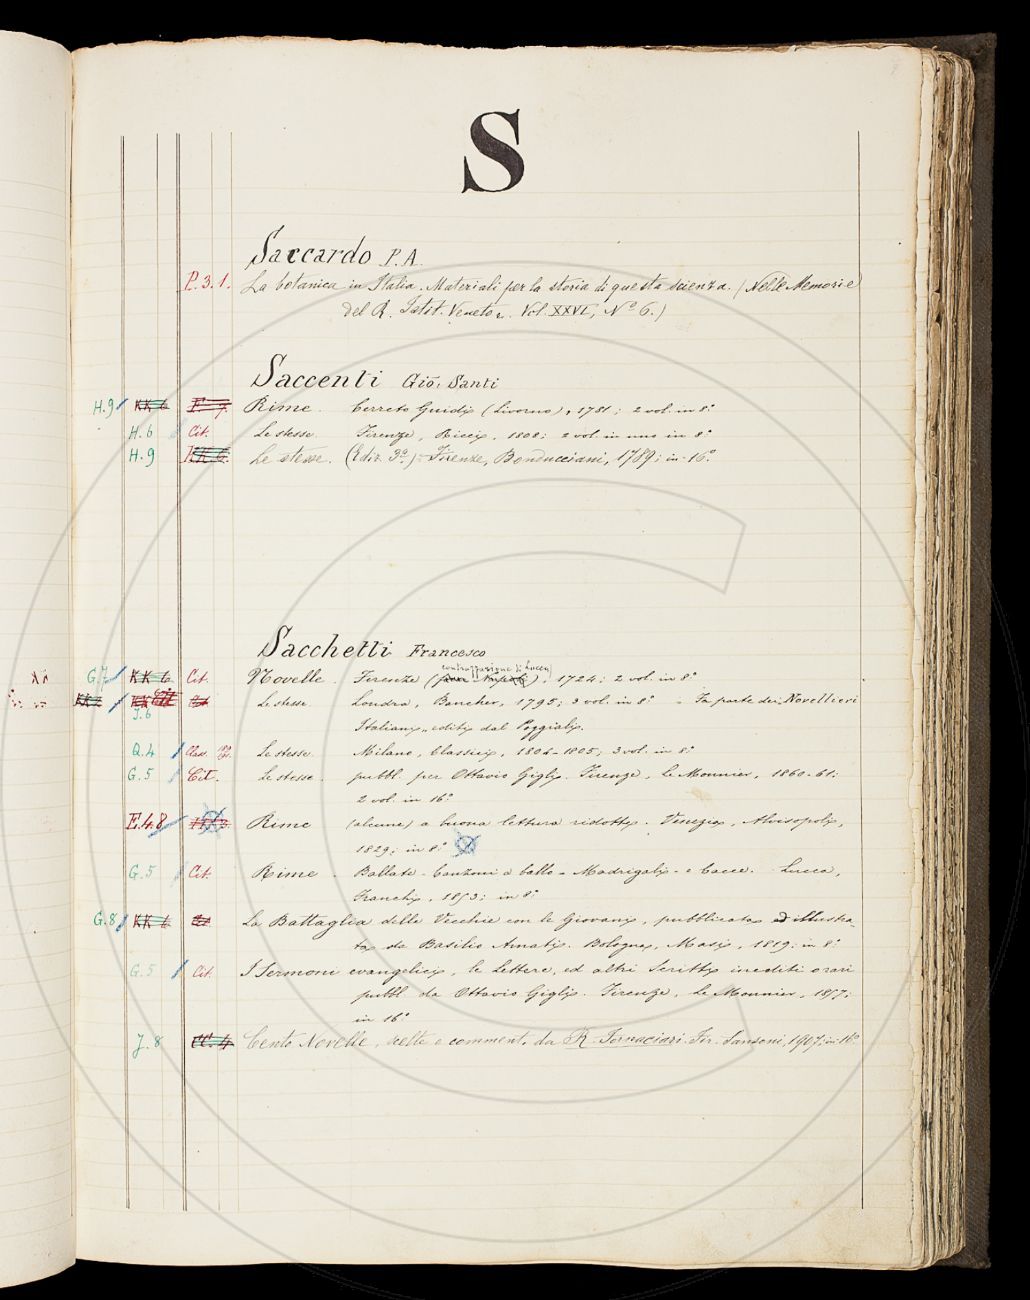 S
Saccardo P. A.
P. 3. 1. La botanica in Italia. Materiali per la storia di questa scienza. (Nelle Memorie
del R. Istit. Veneto. Vol. XXVI, Nº 6.)
Saccenti Gio. Santi
H. 9 KK 6 F 7. Rime. Cerreto Guidi (Livorno), 1781; 2 vol. in 8º
H. 6 Cit. Le stesse. Firenze, Ricci, 1808; 2 vol. in uno in 8º
H. 9 KK 6. Le stesse. (Ediz. 3ª). Firenze, Bonducciani, 1789; in 16º
Sacchetti Francesco
contraffazione di Lucca
G. 7 KK 6 Cit. Novelle. Firenze ( ), 1724; 2 vol. in 8º
KK Cit Le stesse. Londra, Bancker, 1795; 3 vol. in 8º - Fa parte dei Novellieri
J. 6 Italiani editi dal Poggiali.
Q. 4 Class. Le stesse. Milano, Classici, 1804-1805; 3 vol. in 8º
G. 5 Cit. Le stesse. pubbl. per Ottavio Gigli. Firenze, Le Monnier, 1860-61;
2 vol. in 16º
E. 4. 8 Rime (alcune) a buona lettura ridotte. Venezia, Alvisopoli,
1829; in 8º
G. 5 Cit. Rime. Ballate - Canzoni a ballo - Madrigali - e Cacce. Lucca,
Franchi, 1853; in 8º
G. 8 KK 6 La Battaglia delle Vecchie con le Giovani, pubblicata ed illustra-
ta da Basilio Amati. Bologna, Masi, 1819; in 8º
G. 5 Cit. I Sermoni evangelici, le Lettere, ed altri Scritti inediti o rari
pubbl. da Ottavio Gigli. Firenze, Le Monnier, 1857;
in 16º
J. 8 CC. 4 Cento Novelle, scelte e comment. da R. Fornaciari. Fir. Sansoni, 1907; in 16º